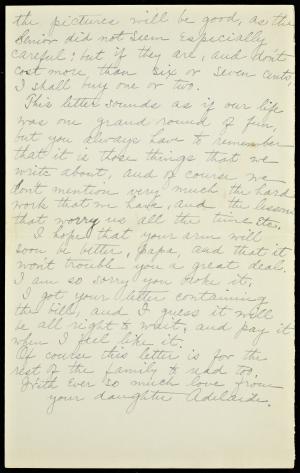 the pictures will be good, as the
Senior did not seem especially
careful; but if they are, and don't
cost more than six or seven cents,
I shall buy one or two.
This letter sounds as if our life
was one grand round of fun,
but you always have to remember
that it is those things that we
write about, and of course we
don't mention very much the hard
work that we have, and the lessons
that worry us all the time etc.
I hope that your arm will
soon be better, papa, and that it
won't trouble you a great deal.
I am so sorry you broke it.
I got your letter containing
the bill, and I guess it will
be all right to wait, and pay it
when I feel like it.
Of course this letter is for the
rest of the family to read too.
With ever so much love from
your daughter Adelaide.